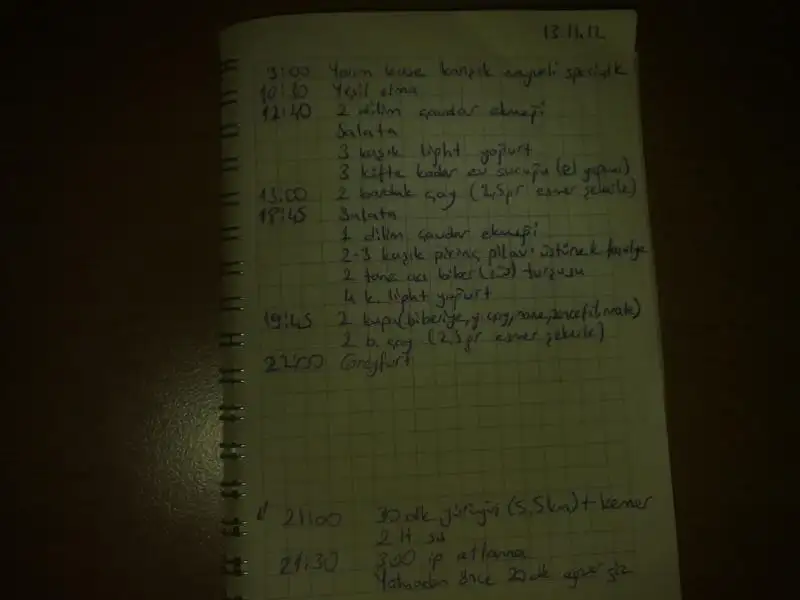 13.11.12
9:00 Yarım kase karışık meyveli specialk
10:30 Yeşil elma
12:40 2 dilim çavdar ekmeği
Salata
3 kaşık light yoğurt
3 köfte kadar ev sucuğu (el yapımı)
13:00 2 bardak çay (2,5gr esmer şekerle)
18:45 Salata
1 dilim çavdar ekmeği
2-3 kaşık pirinç pilavı üstünek fasulye
2 tane acı biber turşusu
4 k. light yoğurt
19:45 2 kupa (biberiye, y. çay, nane, zencefil, mate)
2 b. çay (2,5gr esmer şekerle)
22:00 Greyfurt
21:00 30 dk yürüyüş (5.5km) + kemer
2 lt su
21:30 300 ip atlama
Yatmadan önce 20 dk egzersiz